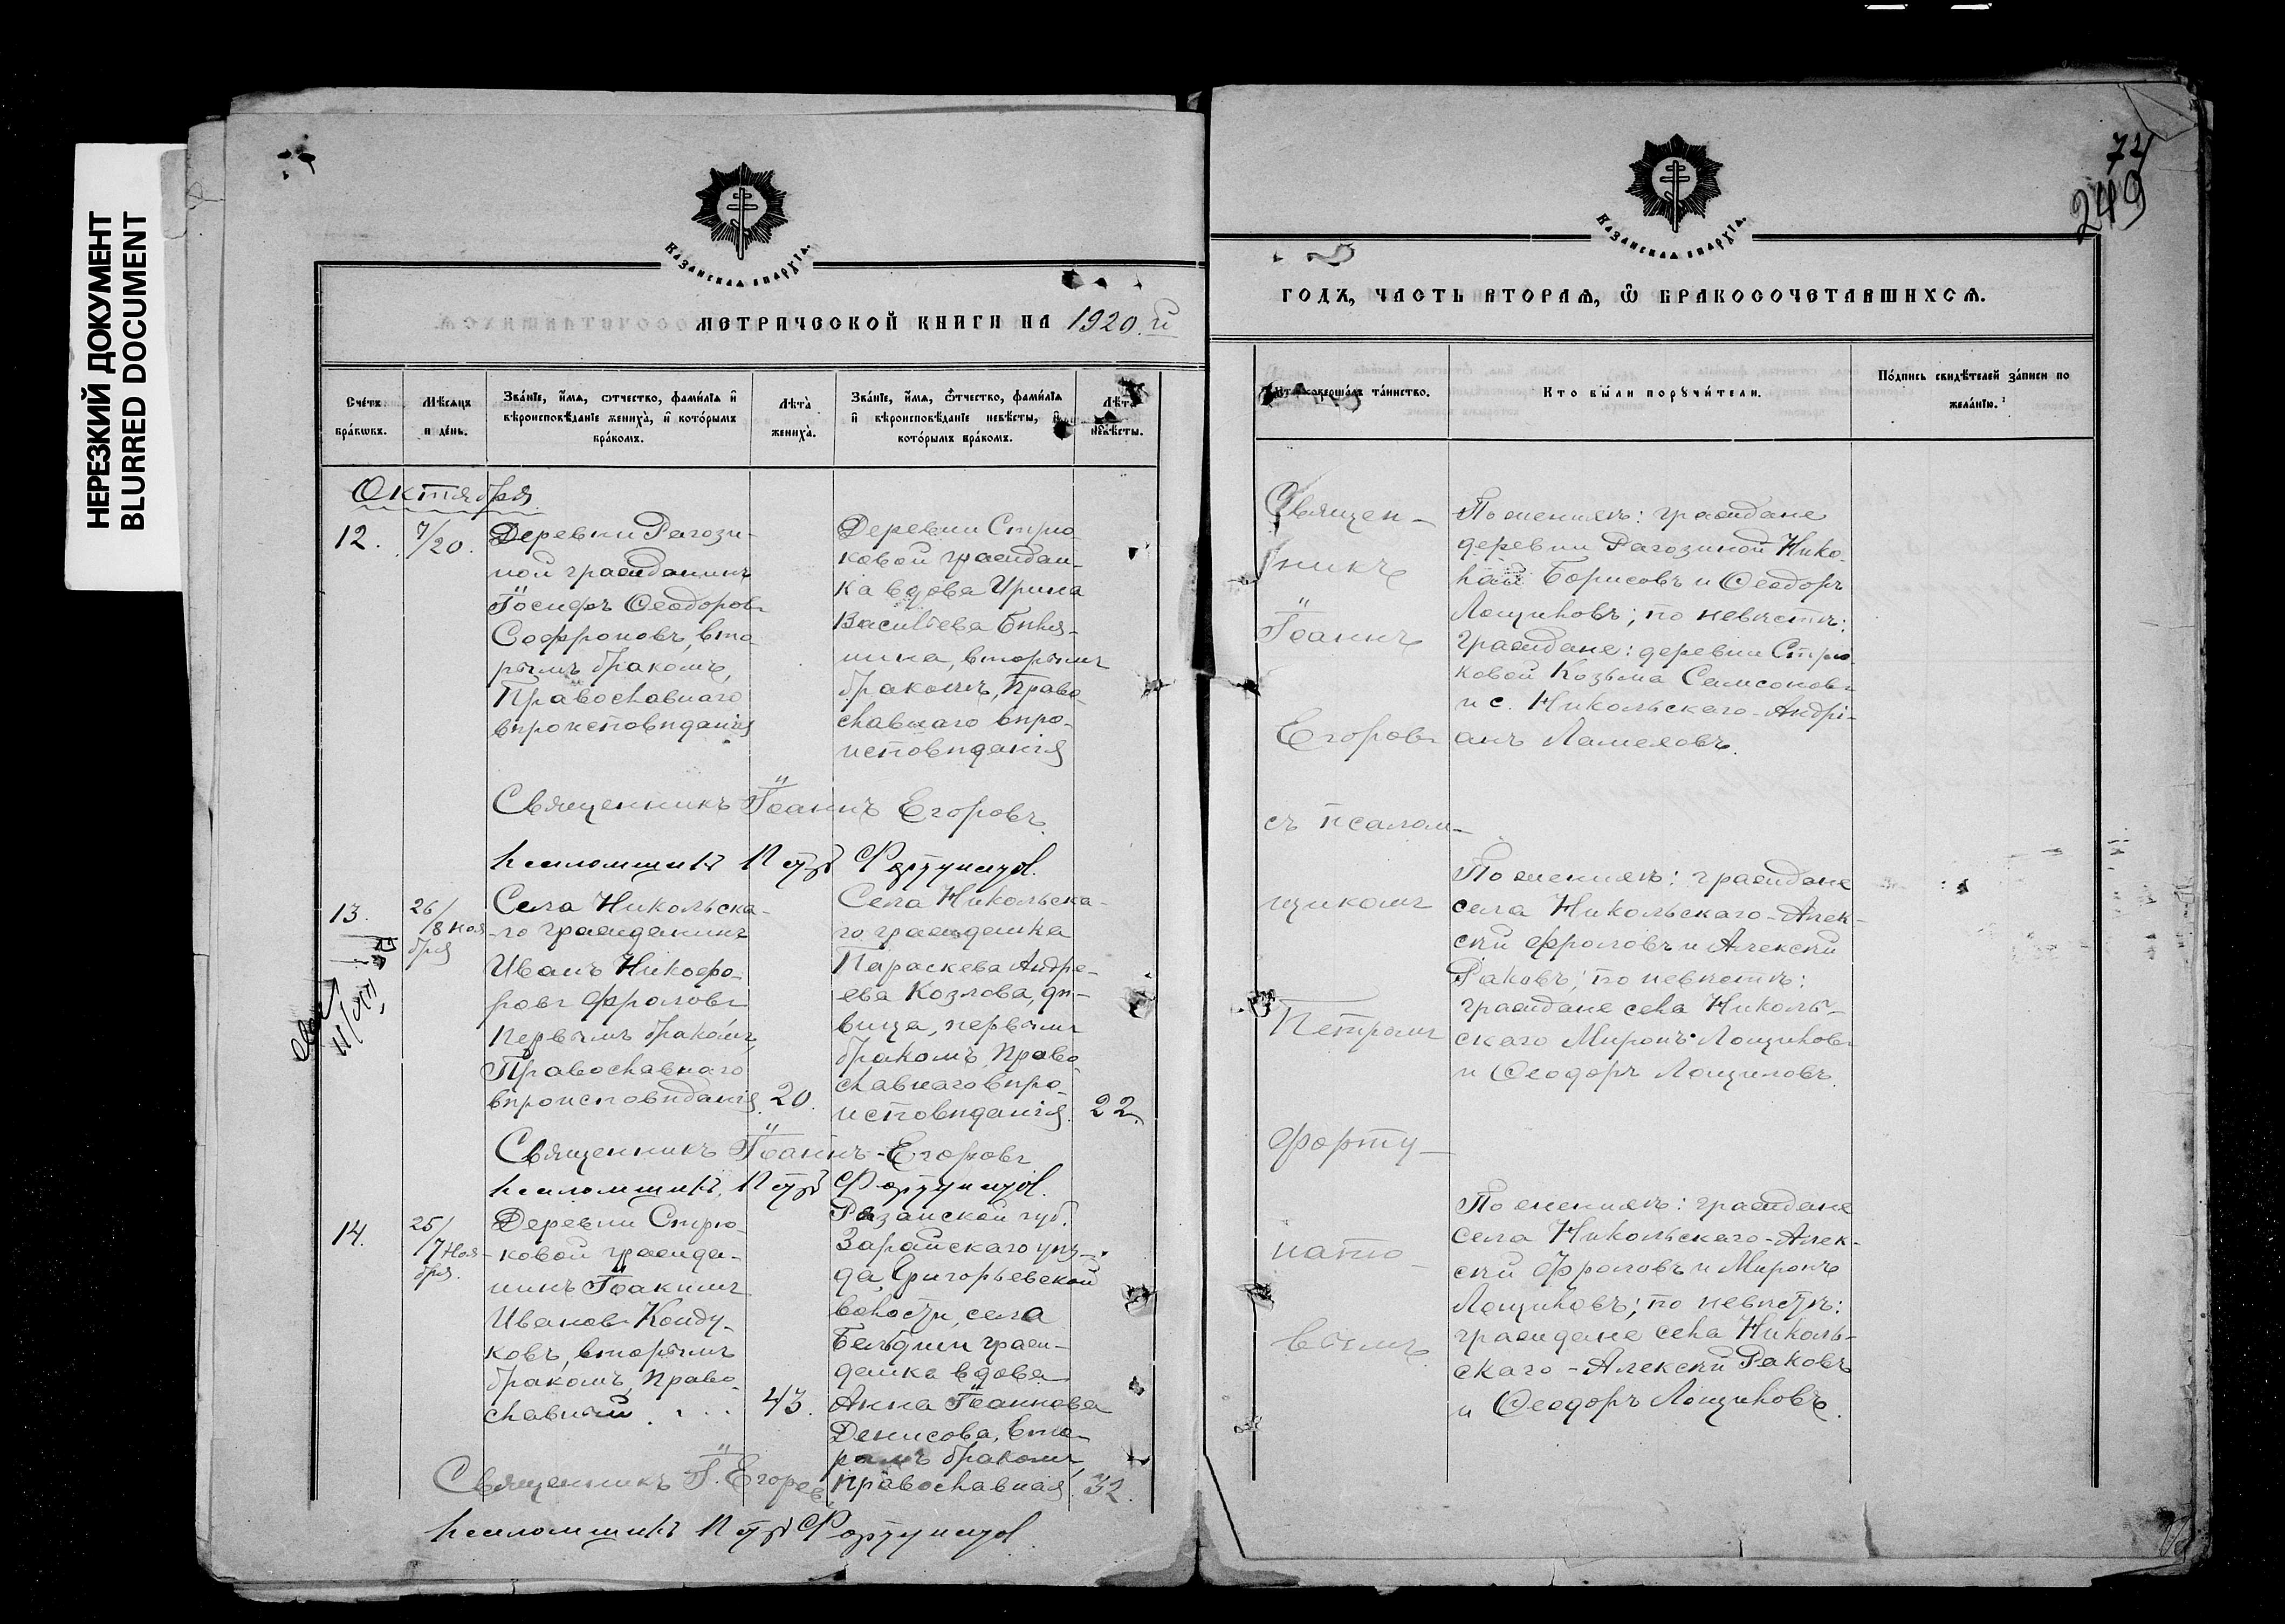 НЕРЕЗКИЙ ДОКУМЕНТ
BLURRED DOCUMENT
КАЗАНСКАЯ ЕПАРХІЯ.
МЕТРИЧЕСКОЙ КНИГИ НА 1920.й
Счетъ браковъ.
Мѣсяцъ и день.
Званіе, имя, отчество, фамилія и вѣроисповѣданіе жениха, и которымъ бракомъ.
Лѣта жениха.
Званіе, имя, отчество, фамилія и вѣроисповѣданіе невѣсты, и которымъ бракомъ.
Лѣта невѣсты.
Октября.
12.
7/20.
Деревни Рагози-
ной гражданинъ
Іосифъ Ѳеодоровъ
Софроновъ, вто-
рымъ бракомъ,
Православнаго
вѣроисповѣданія
Деревни Стрю-
ковой граждан-
ка вдова Ирина
Васильева
вторымъ
бракомъ, Право-
славнаго вѣро-
исповѣданія
Священникъ Іоаннъ Егоровъ.
Псаломщикъ Петръ Фортунатов.
13.
26/
/8 ноя-
бря
Села Никольска-
го гражданинъ
Иванъ Никофо-
ровъ Фроловъ
первымъ бракомъ,
Православнаго
вѣроисповѣданія. 20.
Села Никольска-
го гражданка
Параскева Андре-
ева Козлова, дѣ-
вица, первымъ
бракомъ, Право-
славнаго вѣро-
исповѣданія. 22.
Священникъ Іоаннъ Егоровъ
Псаломщикъ Петръ Фортунатов.
14.
25/
/7 Ноя-
бря.
Деревни Стрю-
ковой гражда-
нинъ Іоакимъ
Ивановъ Конду-
ковъ, вторымъ
бракомъ, Право-
славный. 43.
Рязанской губ.
Зарайскаго уѣз-
да, Григорьевской
волости, села
граж-
данка вдова
Анна Іоаннова
Денисова, вто-
рымъ бракомъ,
православная. 32.
Священникъ І. Егоровъ
Псаломщикъ Петръ Фортунатов.
74
249
КАЗАНСКАЯ ЕПАРХІЯ.
ГОДЪ, ЧАСТЬ ВТОРАЯ, Ѿ БРАКОСОЧЕТАВШИХСЯ.
Кто совершалъ таинство.
Кто были поручители.
Подпись свидѣтелей записи по желанію.
Священ-
никъ
Іоаннъ
Егоровъ
съ псалом-
щикомъ
Петромъ
Форту-
нато-
вымъ
По женихѣ: граждане
деревни Рагозиной Нико-
лай Борисовъ и Ѳеодоръ
Лощиловъ; по невѣстѣ:
граждане: деревни Стрю-
ковой Козьма Самсоновъ
и с. Никольскаго-Андрі-
анъ
По женихѣ: граждане
села Никольскаго-Алек-
сѣй Фроловъ и Алексѣй
Раковъ; по невѣстѣ:
граждане села Николь-
скаго Миронъ Лощиловъ
и Ѳеодоръ Лощиловъ.
По женихѣ: граждане
села Никольскаго-Алек-
сѣй Фроловъ и Миронъ
Лощиловъ; по невѣстѣ:
граждане села Николь-
скаго-Алексѣй Раковъ
и Ѳеодоръ Лощиловъ.